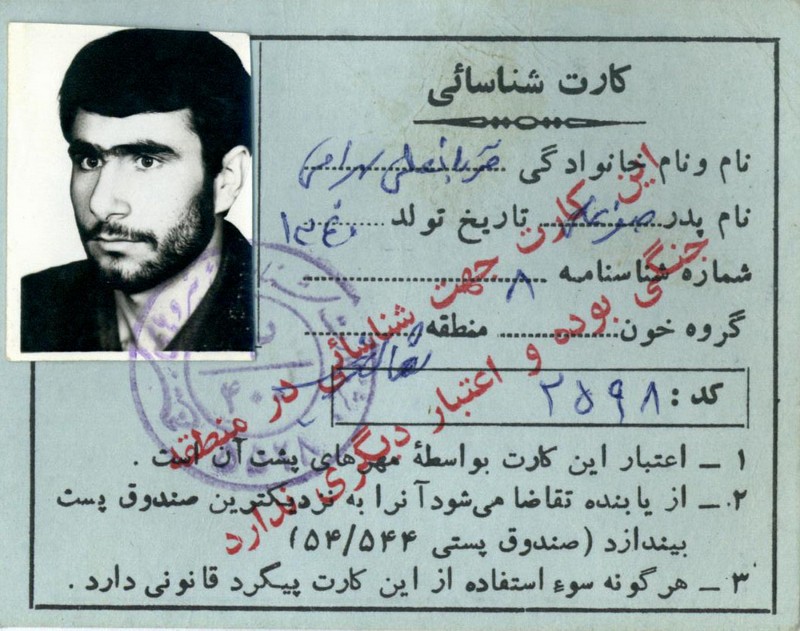 کارت شناسائی
نام و نام خانوادگی قربانعلی بهرامی
نام پدر صفرعلی تاریخ تولد
شماره شناسنامه ۸
گروه خون منطقه
کد : ۲۵۹۸
۱ ــ اعتبار این کارت بواسطهٔ مهرهای پشت آن است .
۲ ــ از یابنده تقاضا می‌شود آنرا به نزدیکترین صندوق پست
بیندازد (صندوق پستی ۵۴/۵۴۴)
۳ ــ هرگونه سوء استفاده از این کارت پیگرد قانونی دارد .
این کارت جهت شناسائی در منطقه
جنگی بوده و اعتبار دیگری ندارد